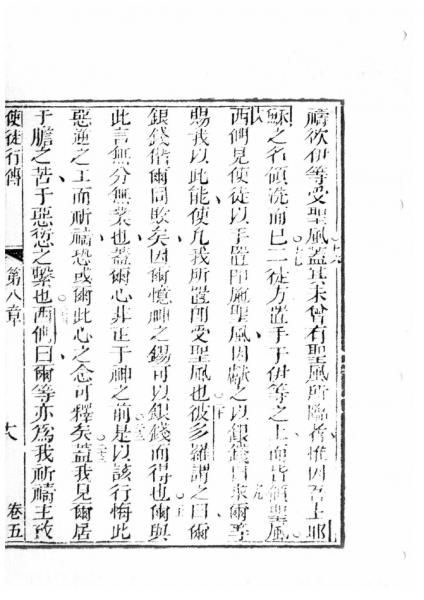 禱欲伊等受聖風蓋其未曾有聖風所臨者惟因吾主耶
穌之名領洗而已二徒方置手于伊等之上而皆領聖風
西們見使徒以手置即施聖風因獻之以銀錢曰求爾等
賜我以此能使凡我所置即受聖風也彼多羅謂之曰爾
銀錢偕爾同敗矣因爾憶神之錫可以銀錢而得也爾與
此言無分無業也蓋爾心非正于神之前是以該行悔此
惡適之主而祈禱恐或爾此心之念可釋矣蓋我見爾居
于膽之苦于惡愆之繫也西們曰爾等亦為我祈禱主致
使徒行傳 第八章 卷五